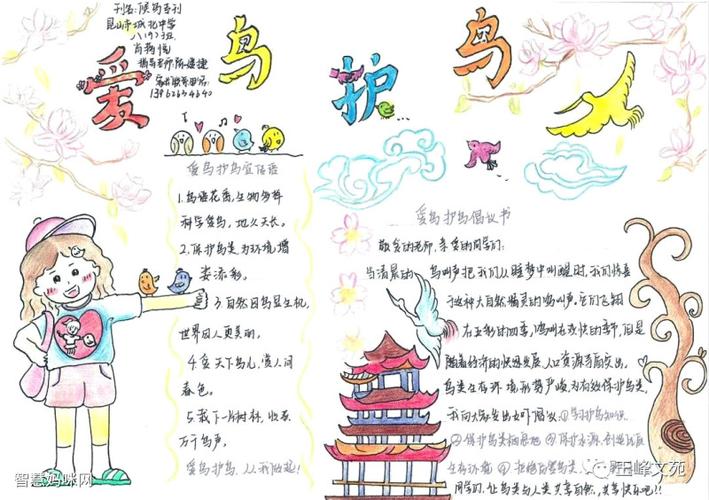 刊名:候鸟专刊
昆山市城北中学
八(9)班
指导老师:陈健捷
爱鸟护鸟
爱鸟护鸟宣传语
1.鸟语花香,生物多样
科学爱鸟,地久天长。
2.保护鸟类,为环境增
姿添彩。
3.自然因鸟显生机,
世界因人更美丽。
4.爱天下鸟儿,懂人间
春色。
5.栽下一片树林,收获
万千鸟声。
爱鸟护鸟,从我做起!
爱鸟护鸟倡议书
敬爱的老师,亲爱的同学们:
当清晨的 鸟叫声把我们从睡梦中叫醒时,我们惊喜
于这种大自然精灵的鸣叫声。它们飞翔
在五彩的四季,鸣叫在欢快的季节,但是
随着经济的快速发展,人口资源矛盾突出,
鸟类生存环境形势严峻,为有效保护鸟类,
我向大家发出如下倡议:①学习护鸟知识
②保护鸟类栖息地 ③保护水源,创造
生存环境 ④拒绝
同学们,让鸟类与人类共享自然,共享快乐吧!!
智慧妈咪网
玉峰文苑